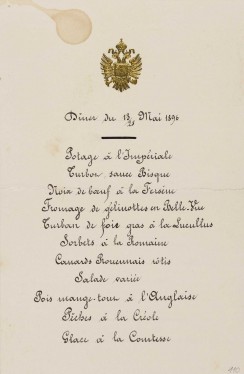 Dîner du 13/25 Mai 1896
Potage à l'Impériale
Turbot sauce Bisque
Noix de bœuf à la Persène
Fromage de gélinottes en Belle-Vue
Turban de foie gras à la Lucullus
Sorbets à la Romaine
Canards Rouennais rôtis
Salade variée
Pois mange-tout à l'Anglaise
Pêches à la Créole
Glace à la Comtesse